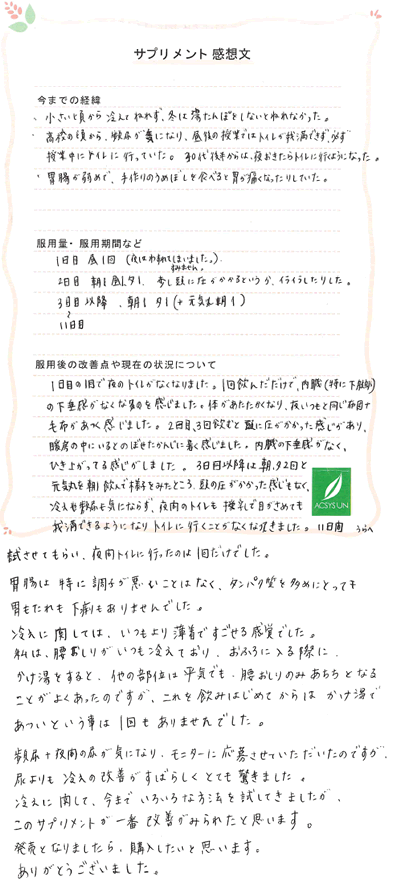 サプリメント 感想文
今までの経緯
・小さい頃から冷えてねれず、冬は湯たんぽをしないとねれなかった。
・高校の頃から、頻尿が気になり、昼後の授業ではトイレが我慢できず、必ず
授業中にトイレに行っていた。30代後半からは、夜おきたらトイレに行くようになった。
・胃腸が弱めで、手作りのうめぼしを食べると胃が痛くなったりしていた。
服用量・服用期間など
1日目 昼1回 (夜は忘れてしまいました。)
すみません。
2日目 朝1 昼1 夕1. 少し頭に圧がかかるというか、イライラしたりした。
3日目以降 、朝1 夕1 (+ 元気丸 朝1)
〜
11日目
服用後の改善点や現在の状況について
1日目の1回で夜のトイレがなくなりました。1回飲んだだけで、内臓(特に下腹部)
の下垂感がなくなるのを感じました。体があたたかくなり、夜いつもと同じ布団+
毛布があつく感じました。2日目、3回飲むと頭に圧がかかった感じがあり、
暖房の中にいるとのぼせたかんじに暑く感じました。内臓の下垂感がなく、
ひき上がってる感じがしました。3日目以降は朝、夕2回と
元気丸を朝飲んで様子をみたところ、頭の圧がかかった感じもなく、
冷えや頻尿も気にならず、夜間のトイレも 尿意で目がさめても
我慢できるようになりトイレに行くことがなくなりました。11日間 うらへ
ACSYS UN
試させてもらい、夜間トイレに行ったのは1回だけでした。
胃腸は特に調子が悪いことはなく、タンパク質を多めにとっても
胃もたれも下痢もありませんでした。
冷えに関しては、いつもより薄着ですごせる感覚でした。
私は、腰おしりがいつも冷えており、おふろに入る際に、
かけ湯をすると、他の部位は平気でも、腰おしりのみあちちとなる
ことがよくあったのですが、これを飲みはじめてからは かけ湯で
あついという事は1回もありませんでした。
頻尿+夜間の尿が気になり、モニターに応募させていただいたのですが、
尿よりも冷えの改善がすばらしくとても驚きました。
冷えに関して、今までいろいろな方法を試してきましたが、
このサプリメントが一番改善がみられたと思います。
発売となりましたら、購入したいと思います。
ありがとうございました。